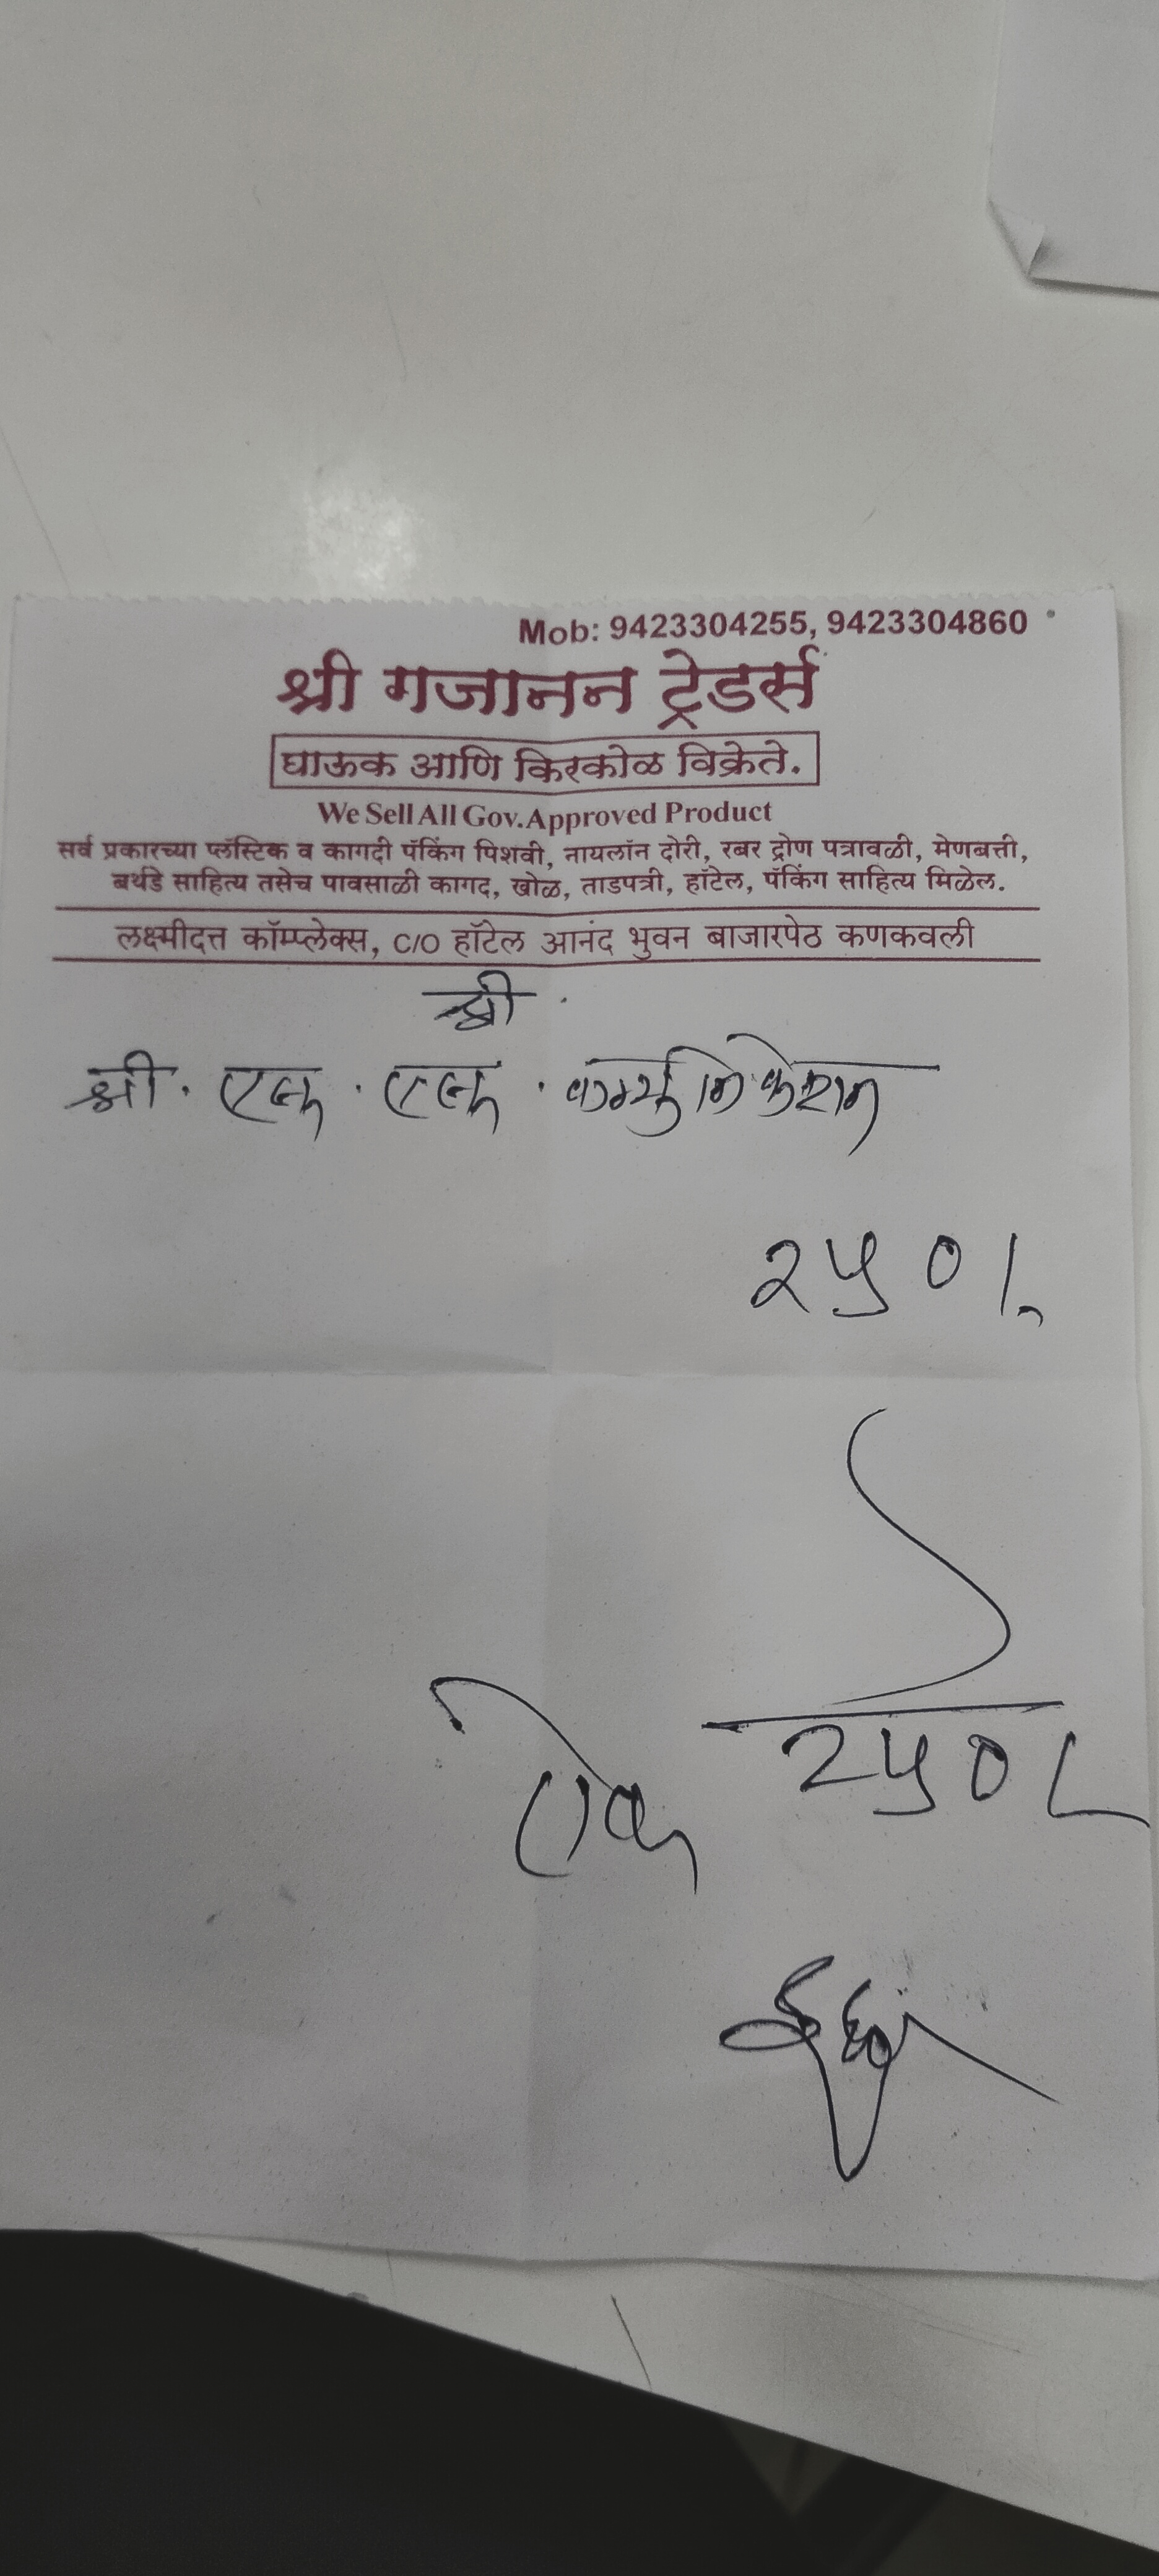 Mob: 9423304255, 9423304860
श्री गजानन ट्रेडर्स
घाऊक आणि किरकोळ विक्रेते.
We Sell All Gov. Approved Product
सर्व प्रकारच्या प्लॅस्टिक व कागदी पॅकिंग पिशवी, नायलॉन दोरी, रबर द्रोण पत्रावळी, मेणबत्ती,
बर्थडे साहित्य तसेच पावसाळी कागद, खोळ, ताडपत्री, हॉटेल, पॅकिंग साहित्य मिळेल.
लक्ष्मीदत्त कॉम्प्लेक्स, C/O हॉटेल आनंद भुवन बाजारपेठ कणकवली
श्री
श्री. एस. एस. कम्युनिकेशन
२५०/-
२५०/-